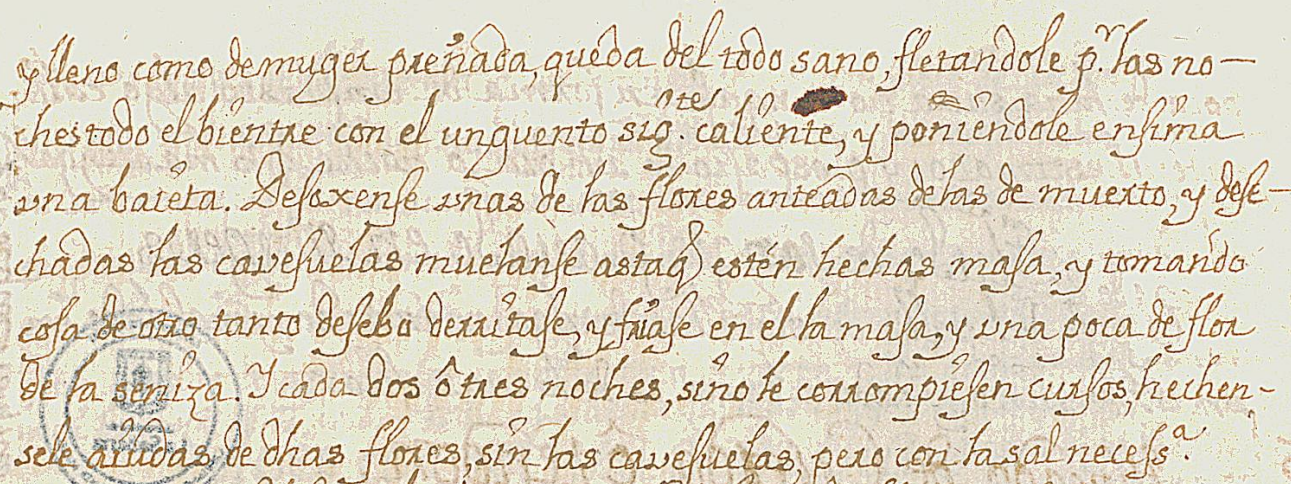 y lleno como de muger preñada, queda del todo sano, fletandole p.r las no-
ches todo el bientre con el unguento sig.te caliente, y poniendole ensima
vna baieta. Desoxense vnas de las flores anteadas de las de muerto, y dese-
chadas las cavesuelas muelanse asta q̃ estén hechas masa, y tomando
cosa de otro tanto de sebo derritase, y friase en el la masa, y vna poca de flor
de la seniza. Y cada dos ô tres noches, si no le corrompiesen cursos, hechen-
sele aiudas de dhas flores, sin las cavesuelas, pero con la sal necess.a